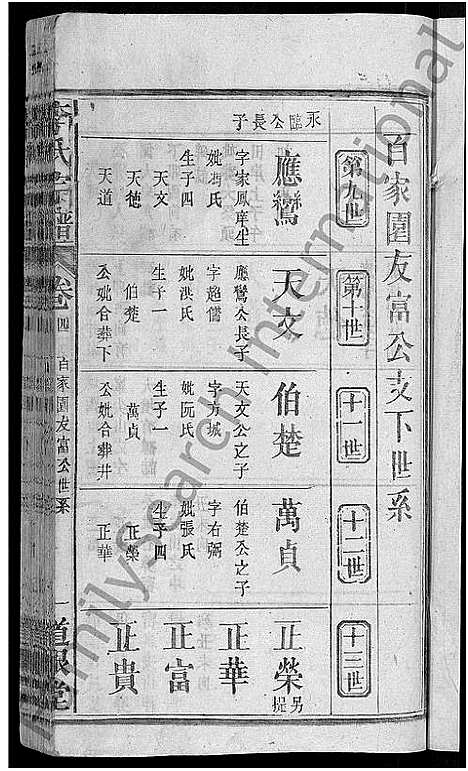 百家園友富公支下世系
第九世
第十世
十一世
十二世
十三世
永臨公長子
應鸞
字家鳳庠生
妣馮氏
生子四
天文
天德
天道
天文
應鸞公長子
字超儒
妣洪氏
生子一
伯楚
公妣合葬下
伯楚
天文公之子
字方城
妣阮氏
生子一
萬貞
公妣合葬井
萬貞
伯楚公之子
字右弼
妣張氏
生子四
正榮
正華
正榮
另提
正華
正富
正貴
李氏宗譜
卷四
百家園友富公世系
一
道眼堂
FamilySearch International